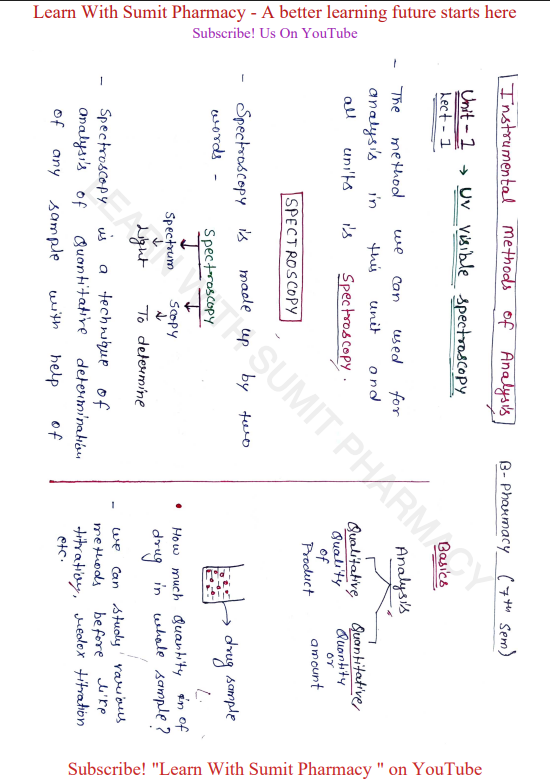 Learn With Sumit Pharmacy - A better learning future starts here
Subscribe! Us On YouTube
Instrumental Methods of Analysis
B-Pharmacy (7th Sem)
Unit-1 → UV Visible spectroscopy
Lect-1
- The method we can used for
analysis in this unit and
all units is Spectroscopy.
SPECTROSCOPY
- Spectroscopy is made up by two
words -
Spectroscopy
Spectrum Scopy
Light To determine
- Spectroscopy is a technique of
analysis of Quantitative determination
of any sample with help of
Basics
Analysis
Qualitative, Quantitative,
Quality Quantity
of or
Product amount
→ drug sample
• How much Quantity in of
drug in whole sample?
- we can study various
methods before like
titration, redox titration
etc.
LEARN WITH SUMIT PHARMACY
Subscribe! "Learn With Sumit Pharmacy " on YouTube